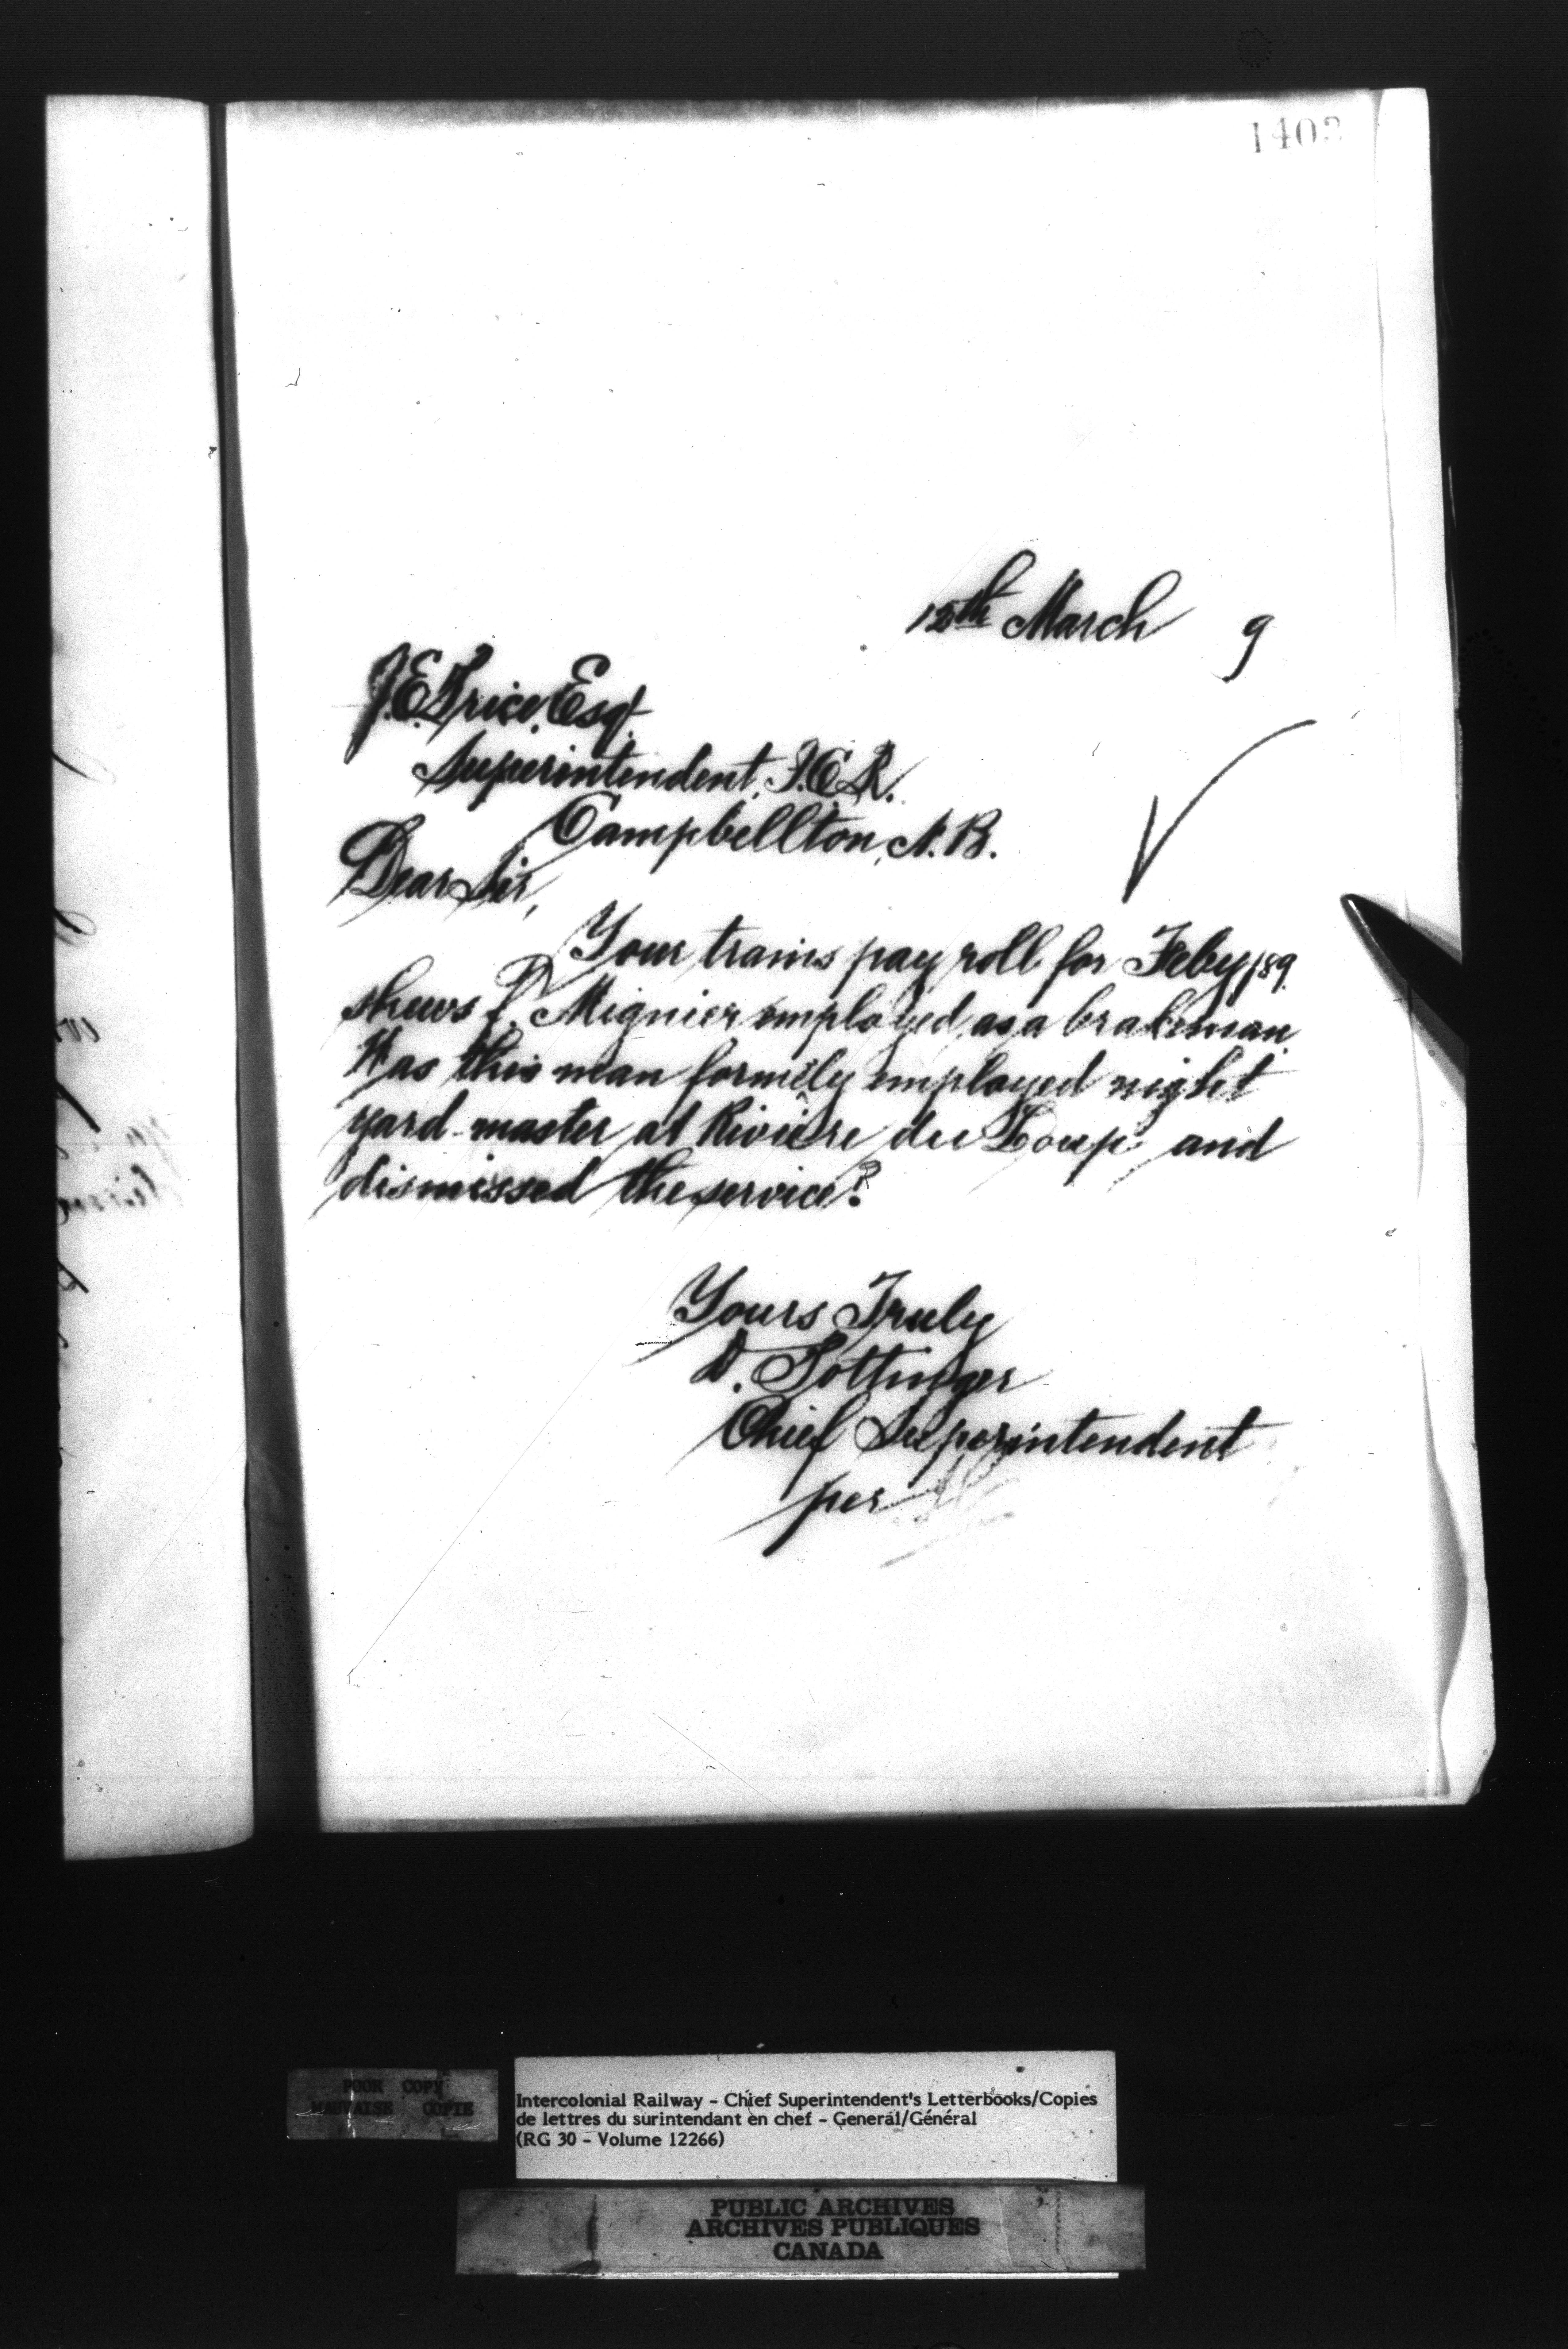 12th March 9
J. E. Price, Esq.
Superintendent, I. C. R.
Campbellton, N. B.
Dear Sir,
Your trains pay roll for Feby/89
shews P. Mignier employed as a brakeman.
Was this man formely employed night
yard-master at Rivière du Loup and
dismissed the service?
Yours Truly
D. Pottinger
Chief Superintendent
per
POOR COPY
MAUVAISE COPIE
Intercolonial Railway - Chief Superintendent's Letterbooks/Copies
de lettres du surintendant en chef - General/Général
(RG 30 - Volume 12266)
PUBLIC ARCHIVES
ARCHIVES PUBLIQUES
CANADA